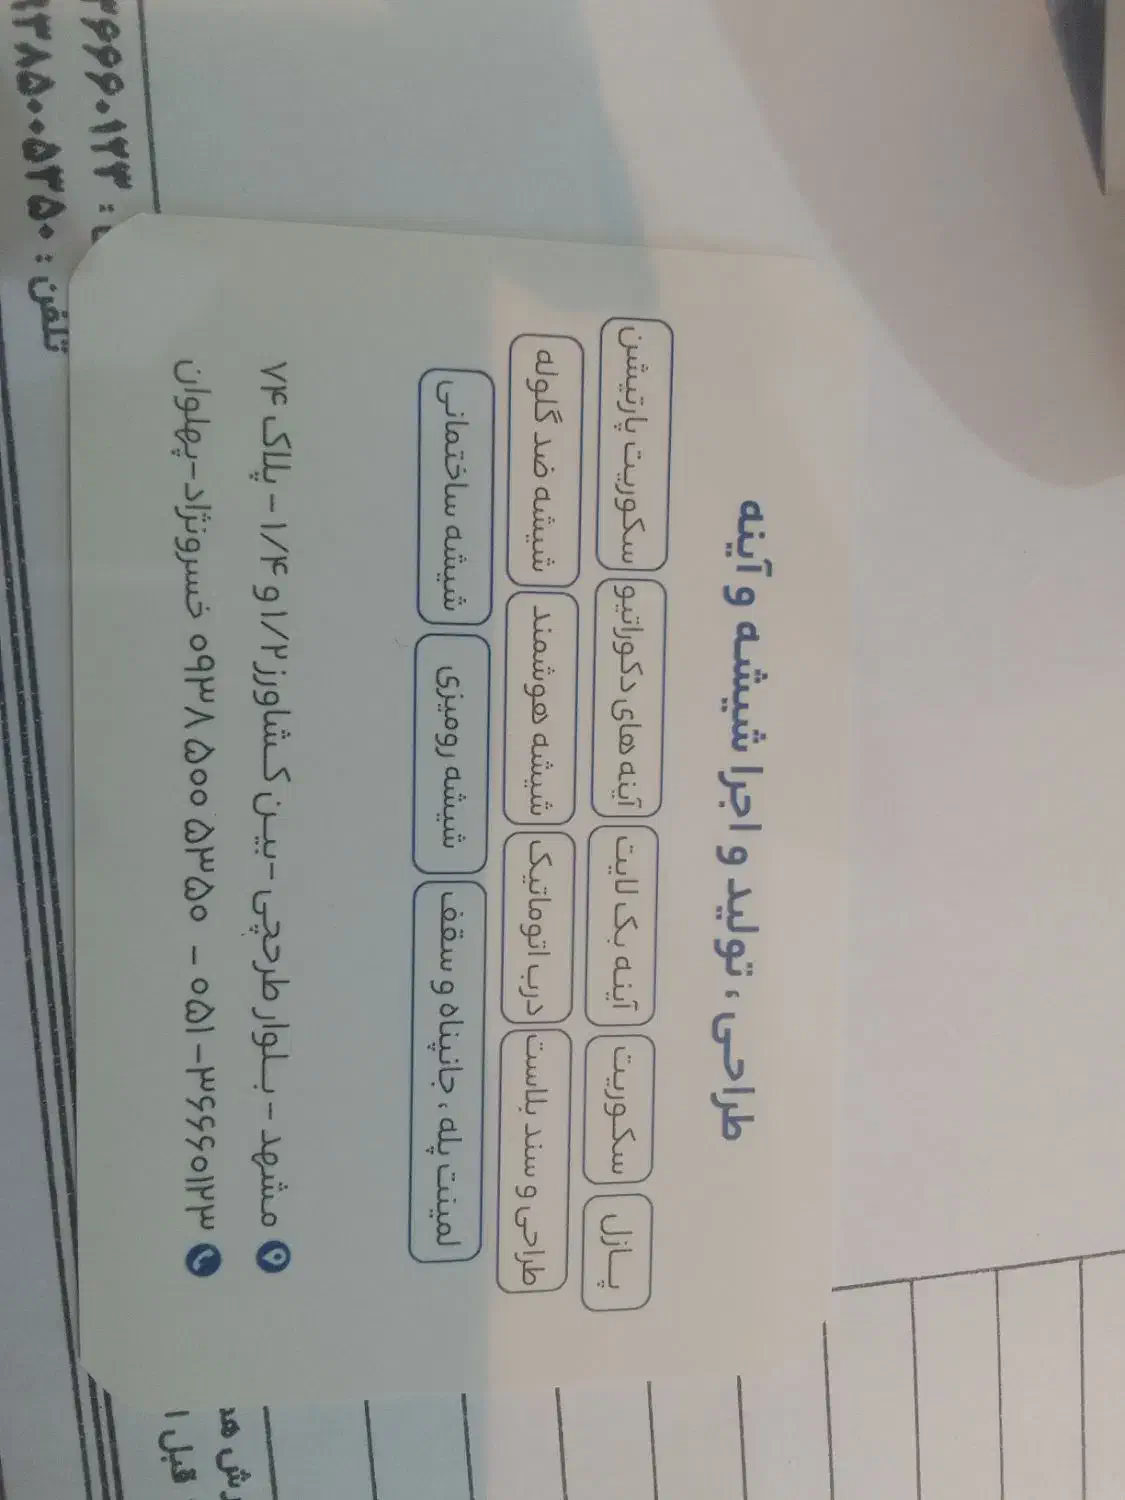 طراحی ، تولید و اجرا شیشه و آینه
پازل سکوریت آینه بک لایت آینه های دکوراتیو سکوریت پارتیشن
طراحی و سند بلاست درب اتوماتیک شیشه هوشمند شیشه ضد گلوله
لمینت پله ، جانپناه و سقف شیشه رومیزی شیشه ساختمانی
مشهد - بلوار طرحچی - بین کشاورز ۱/۲ و ۱/۴ - پلاک ۷۴
۰۵۱-۳۶۶۶۰۱۲۳ - ۰۹۳۸ ۵۰۰ ۵۳۵۰ خسرونژاد-پهلوان
۳۶۶۶۰۱۲۳ :
تلفن : ۹۳۸۵۰۰۵۳۵۰
قبل ا